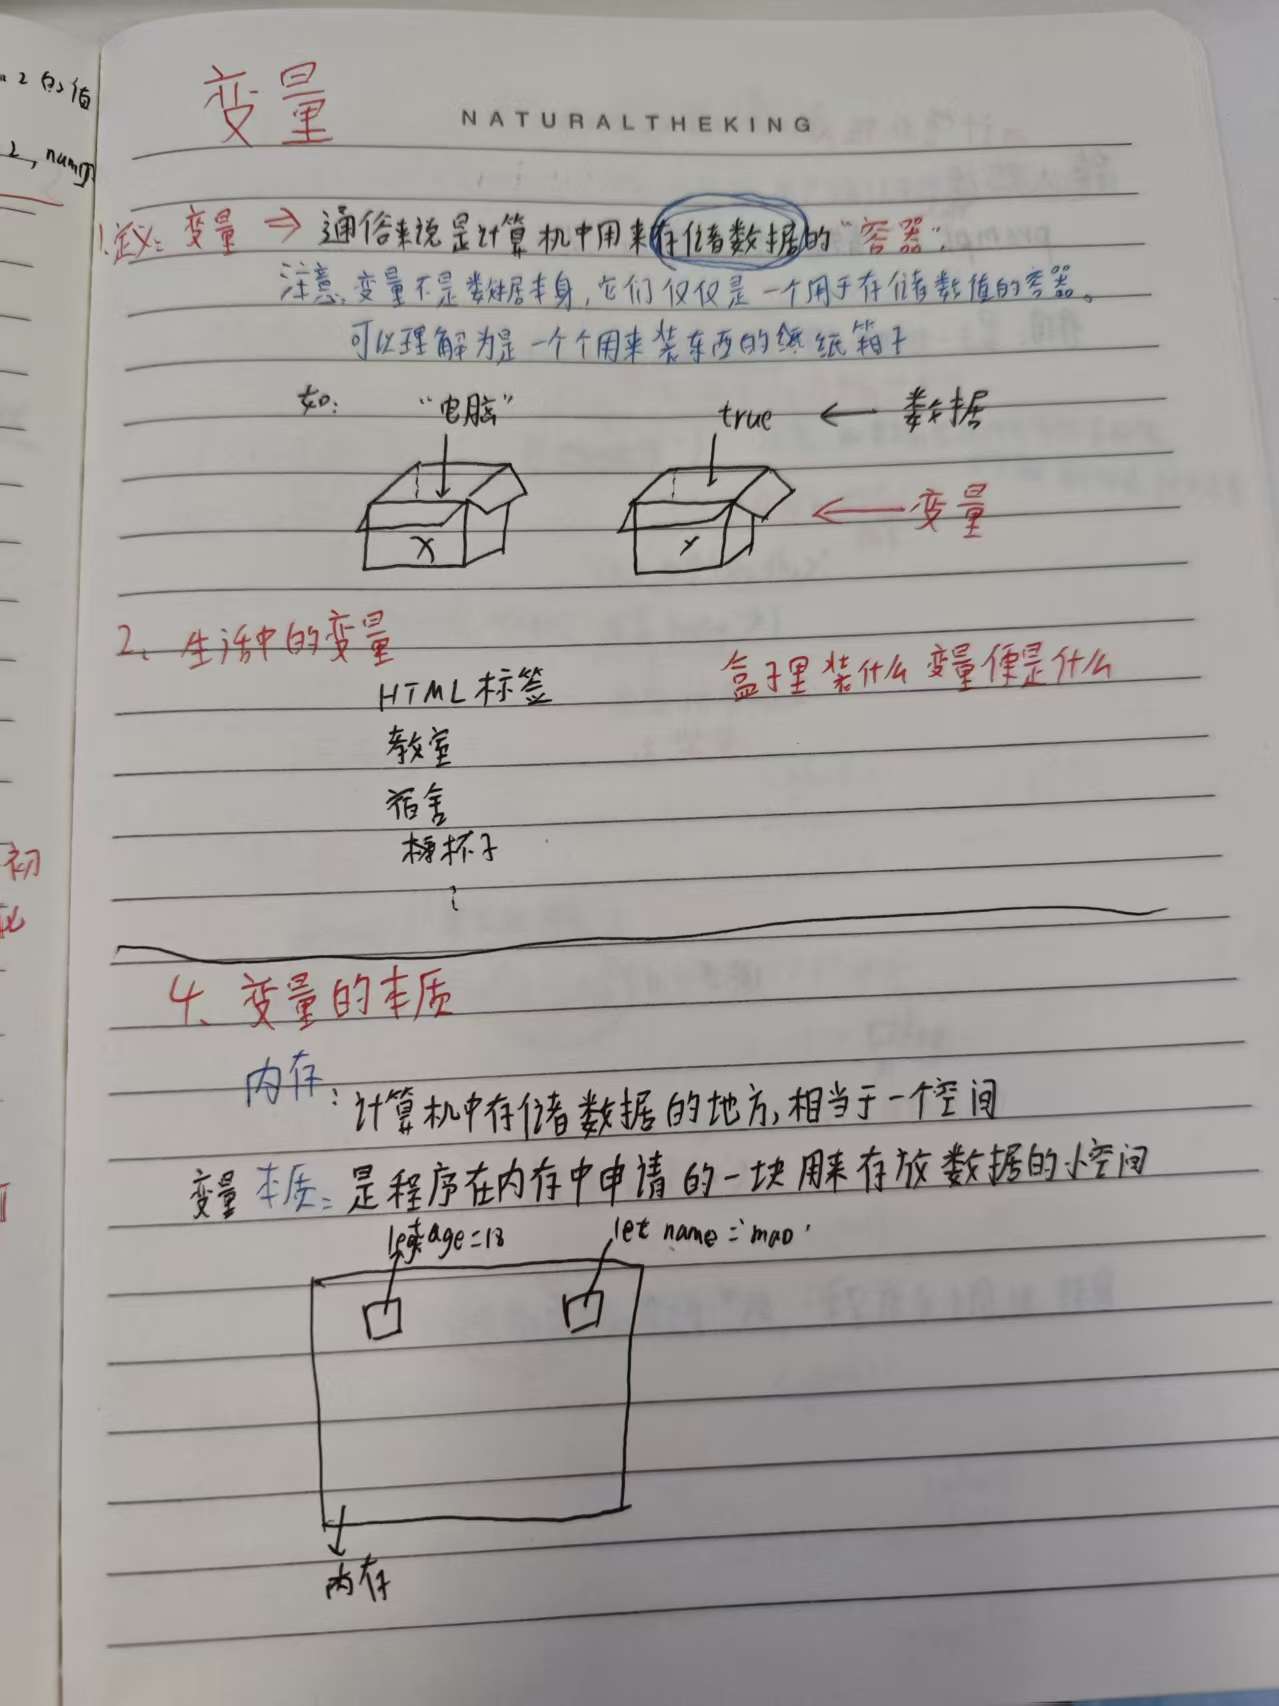 变量
NATURALTHEKING
2的值
2, num
1.定义: 变量 ⇒ 通俗来说是计算机中用来存储数据的"容器".
注意, 变量不是数据本身, 它们仅仅是一个用于存储数值的容器。
可以理解为是一个个用来装东西的纸箱子
如: "电脑" true ← 数据
X Y ← 变量
2、生活中的变量
HTML标签 盒子里装什么变量便是什么
教室
宿舍
杯子
初
4、变量的本质
内存: 计算机中存储数据的地方, 相当于一个空间
变量本质: 是程序在内存中申请的一块用来存放数据的小空间
let age=18 let name='mao'
内存